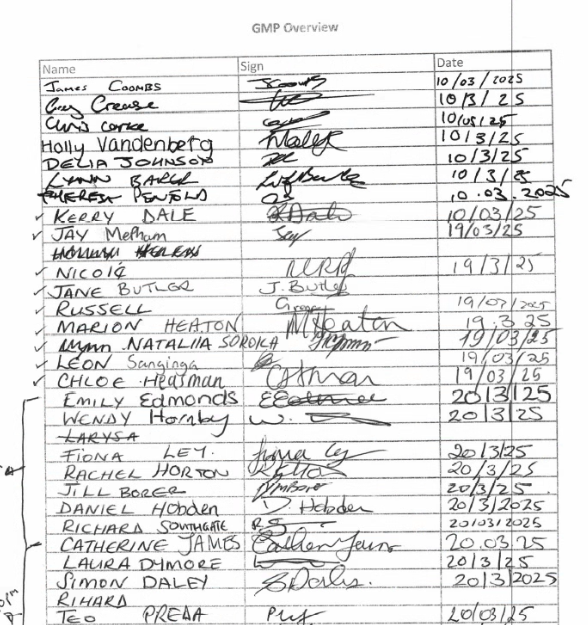 GMP Overview
Name Sign Date
James COOMBS JCoombs 10/03/2025
Guy Crease 10/3/25
Chris 10/03/25
Holly Vandenberg 10/3/25
DELIA JOHNSON 10/3/25
LYNN 10/3/25
THERESA PENFOLD 10.03.2025
KERRY DALE KDale 10/03/25
JAY Mepham 19/03/25
NICOLE 19/3/25
JANE BUTLER J. Butler
RUSSELL 19/03/2025
MARION HEATON MHeaton 19.3.25
NATALIIA SOROKA 19/03/25
LEON Sanginga 19/03/25
CHLOE Heasman 19/03/25
EMILY Edmonds 20/3/25
WENDY Hornby W. 20/3/25
LARYSA
FIONA LEY. Fiona Ley 20/3/25
RACHEL HORTON 20/3/25
JILL BORER 20/3/25
DANIEL Hobden D. Hobden 20/3/2025
RICHARD SOUTHGATE RS 20/03/2025
CATHERINE JAMES Catherine James 20.03.25
LAURA DYMORE 20/3/25
SIMON DALEY 20/3/2025
RIHARD
TEO PREDA 20/03/25